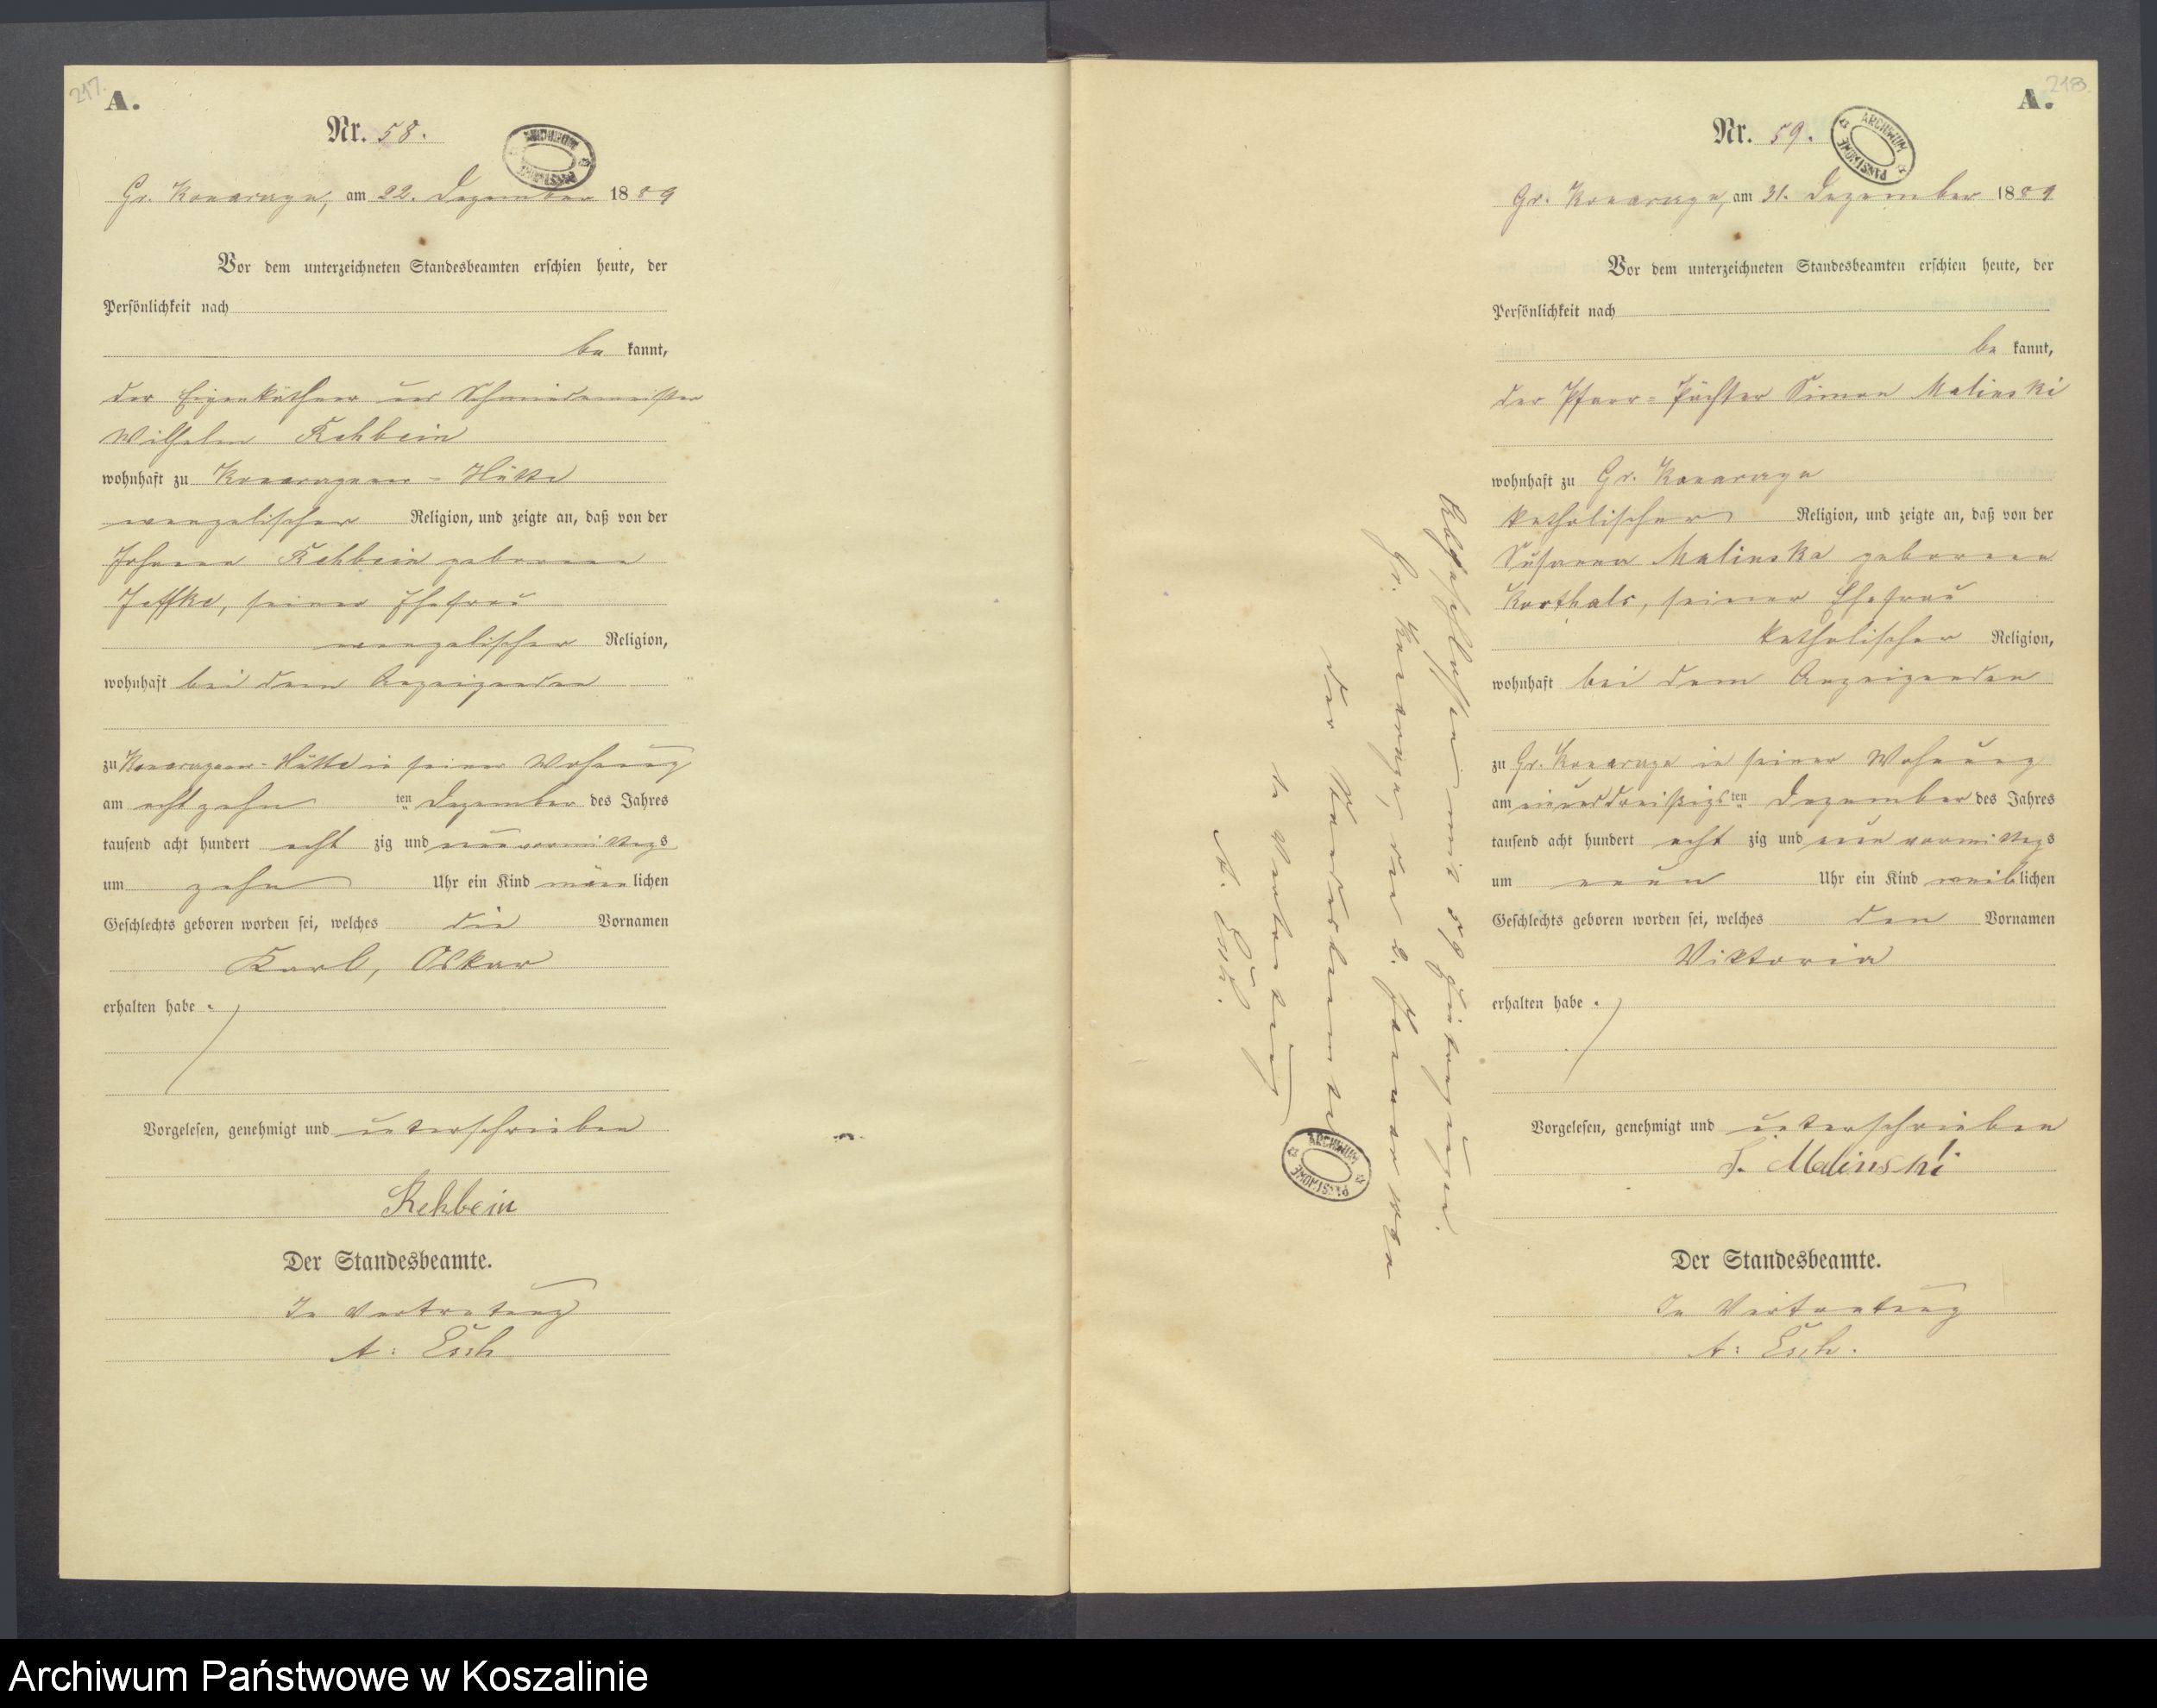 217.
A.
Nr. 58.
ARCHIWUM PAŃSTWOWE
Gr. Konarzyn, am 22. Dezember 1889
Vor dem unterzeichneten Standesbeamten erschien heute, der
Persönlichkeit nach
be kannt,
der Eigenkäthner und Schmiedemeister
Wilhelm Rehbein
wohnhaft zu Konarzyner-Hütte
evangelischer Religion, und zeigte an, daß von der
Johanna Rehbein geborene
Jeffke, seiner Ehefrau
evangelischer Religion,
wohnhaft bei dem Anzeigenden
zu Konarzyner-Hütte in seiner Wohnung
am achtzehn ten Dezember des Jahres
tausend acht hundert acht zig und neun vormittags
um zehn Uhr ein Kind männlichen
Geschlechts geboren worden sei, welches die Vornamen
Karl, Oskar
erhalten habe.
Vorgelesen, genehmigt und unterschrieben
Rehbein
Der Standesbeamte.
In Vertretung
A: Esch
218.
A.
Nr. 59.
ARCHIWUM PAŃSTWOWE
Gr. Konarzyn, am 31. Dezember 1889
Vor dem unterzeichneten Standesbeamten erschien heute, der
Persönlichkeit nach
be kannt,
der Pfarr-Pächter Simon Malinski
wohnhaft zu Gr. Konarzyn
katholischer Religion, und zeigte an, daß von der
Susanna Malinska geborene
Korthals, seiner Ehefrau
katholischer Religion,
wohnhaft bei dem Anzeigenden
zu Gr. Konarzyn in seiner Wohnung
am einunddreißigs ten Dezember des Jahres
tausend acht hundert acht zig und neun vormittags
um neun Uhr ein Kind weiblichen
Geschlechts geboren worden sei, welches den Vornamen
Viktoria
erhalten habe.
Vorgelesen, genehmigt und unterschrieben
S. Malinski
Der Standesbeamte.
In Vertretung
A: Esch.
Abgeschlossen mit 59 Eintragungen.
Gr. Konarzyn, den 1. Januar 1890
Der Standesbeamte
In Vertretung
A. Esch.
ARCHIWUM PAŃSTWOWE
Archiwum Państwowe w Koszalinie